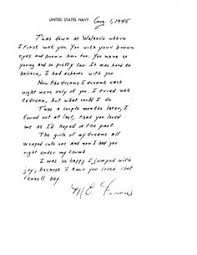 UNITED STATES NAVY
Aug 1, 1945
Twas down at Walson's where
I first met you. You with your brown
eyes and brown hair too. You were so
young and so pretty too. It was hard to
believe, I had a chance with you.
Now the dreams I dreamt each
night were only of you. I tried not
to dream, but what could I do.
Twas a couple months later, I
found out at last, that you loved
me as I'd hoped in the past.
The girls of my dreams all
wraped into one and now I had you
right under my thumb.
I was so happy I jumped with
joy, because I knew you
boy.
M.E.